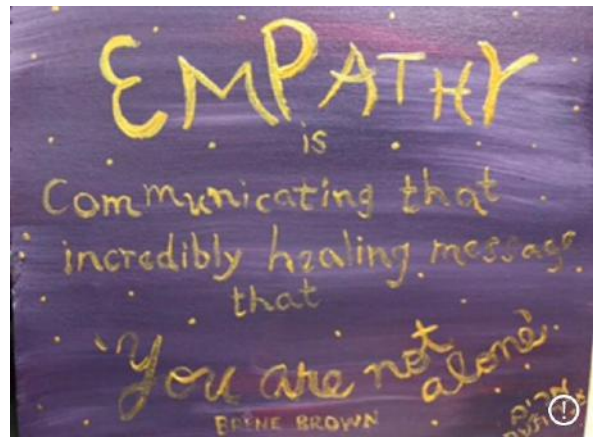 EMPATHY
is
Communicating that
incredibly healing message
that
'You are not alone'.
BRENE BROWN
מרים